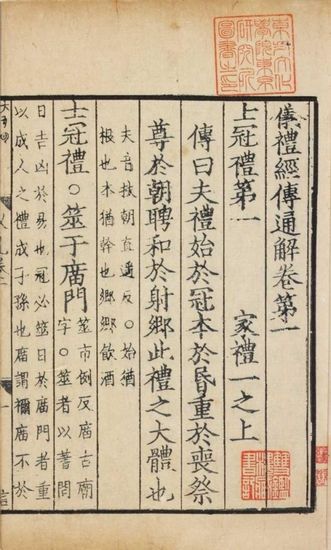 儀禮經傳通解卷第一
士冠禮第一 家禮一之上
傳曰夫禮始於冠本於昏重於喪祭
尊於朝聘和於射鄉此禮之大體也
夫音扶朝直遥反○始猶
根也本猶幹也鄉鄉飲酒
士冠禮○筮于庿門
筮市例反庿古廟
字○筮者以蓍問
日吉凶於易也冠必筮日於庿門者重
以成人之禮成子孫也庿謂禰庿不於
東方文化
學院東京
研究所
圖書之印